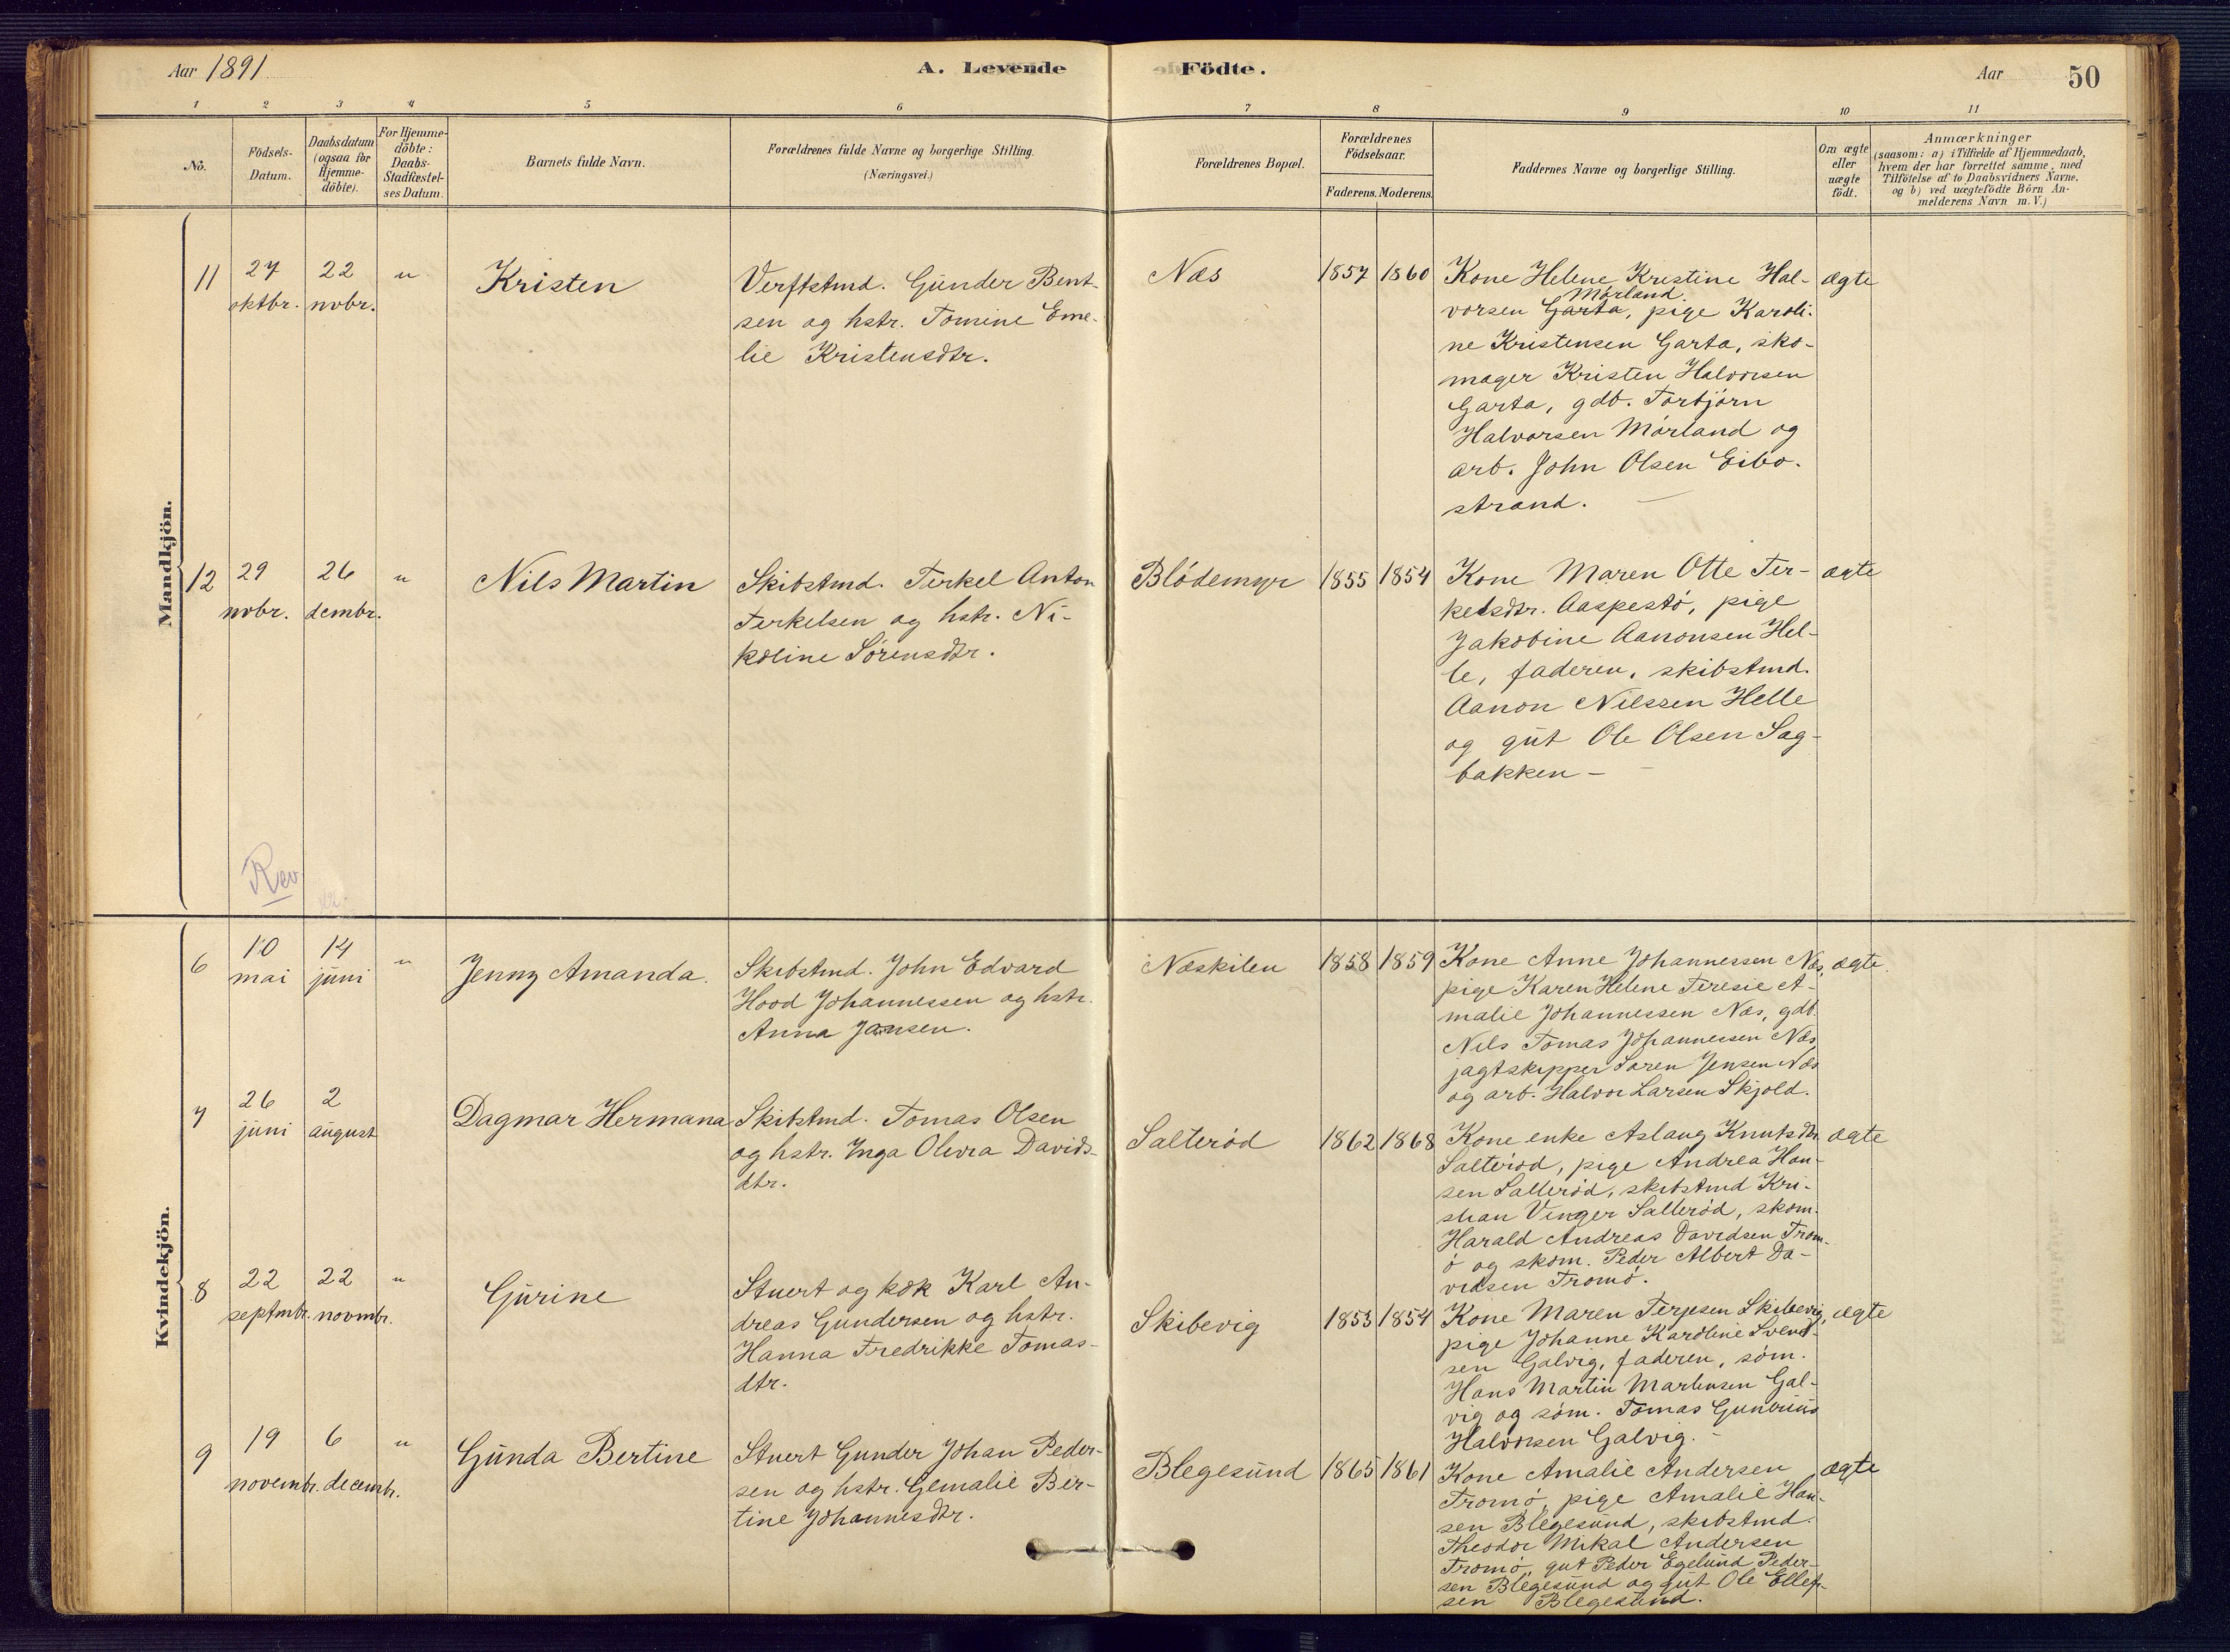 Aar 1891.
A. Levende Födte.
Aar
50
1 2 3 4 5 6 7 8 9 10 11
No.
Födsels-
Datum.
Daabsdatum
(ogsaa for
Hjemme-
döbte).
For Hjemme-
döbte:
Daabs-
Stadfæstel-
ses Datum.
Barnets fulde Navn.
Forældrenes fulde Navne og borgerlige Stilling.
(Næringsvei.)
Forældrenes Bopæl.
Forældrenes
Födselsaar.
Faderens. Moderens.
Faddernes Navne og borgerlige Stilling.
Om ægte
eller
uægte
födt.
Anmærkninger
(saasom: a) i Tilfælde af Hjemmedaab,
hvem der har forrettet samme, med
Tilföielse af to Daabsvidners Navne,
og b) ved uægtefödte Börn An-
melderens Navn m.V.)
Mandkjön.
11
27
oktbr.
22
nobr.
"
Kristen
Verftstmd. Gunder Bent-
sen og hstr. Tomine Eme-
lie Kristensdtr.
Næs
1857
1860
Kone Helene Kristine Hal-
Mørland.
vorsen Garta, pige Karoli-
ne Kristensen Garta, sko-
mager Kristen Halvorsen
Garta, gdb. Torbjørn
Halvorsen Mørland og
arb. John Olsen Eibo-
strand. —
ægte
12
29
nobr.
26
dembr.
"
Nils Martin
Skibstmd. Terkel Anton
Terkelsen og hstr. Ni-
koline Sørensdtr.
Blødemyr
1855
1854
Kone Maren Otte Ter-
kelsdtr. Aaspestø, pige
Jakobine Aanonsen Hel-
le, faderen, skibstmd.
Aanon Nilssen Helle
og gut Ole Olsen Sag-
bakken —
ægte
Rev
Kvindekjön.
6
10
mai
14
juni
"
Jenny Amanda.
Skibstmd. John Edvard
Hood Johannessen og hstr.
Anna Jansen.
Næskilen
1858
1859
Kone Anne Johannessen Næs,
pige Karen Helene Teresie A-
malie Johannessen Næs, gdb.
Nils Tomas Johannessen Næs,
jagtskipper Søren Jensen Næs
og arb. Halvor Larsen Skjold.
ægte.
7
26
juni
2
august
Dagmar Hermana
Skibstmd. Tomas Olsen
og hstr. Inga Olivia Davids-
dtr.
Salterød
1862
1868
Kone enke Aslaug Knutsdtr.
Salterød, pige Andrea Han-
sen Salterød, skibstmd Kri-
stian Vinger Salterød, skom.
Harald Andreas Davidsen Trom-
ø og skom. Peder Albert Da-
vidsen Tromø.
ægte
8
22
septmbr.
22
novmbr.
"
Gurine
Stuert og kok Karl An-
dreas Gundersen og hstr.
Hanna Fredrikke Tomas-
dtr.
Skibevig
1853
1854
Kone Maren Terjesen Skibevig,
pige Johanne Karoline Svend-
sen Galvig, faderen, søm.
Hans Martin Martinsen Gal-
vig og søm. Tomas
Halvorsen Galvig. —
ægte
9
19
novembr.
6
decembr.
"
Gunda Bertine
Stuert Gunder Johan Peder-
sen og hstr. Gemalie Ber-
tine Johannesdtr.
Blegesund
1865
1861
Kone Amalie Andersen
Tromø, pige Amalie Han-
sen Blegesund, skibstmd.
Theodor Mikal Andersen
Tromø, gut Peder Egelund Peder-
sen Blegesund og gut Ole Ellef-
sen Blegesund.
ægte